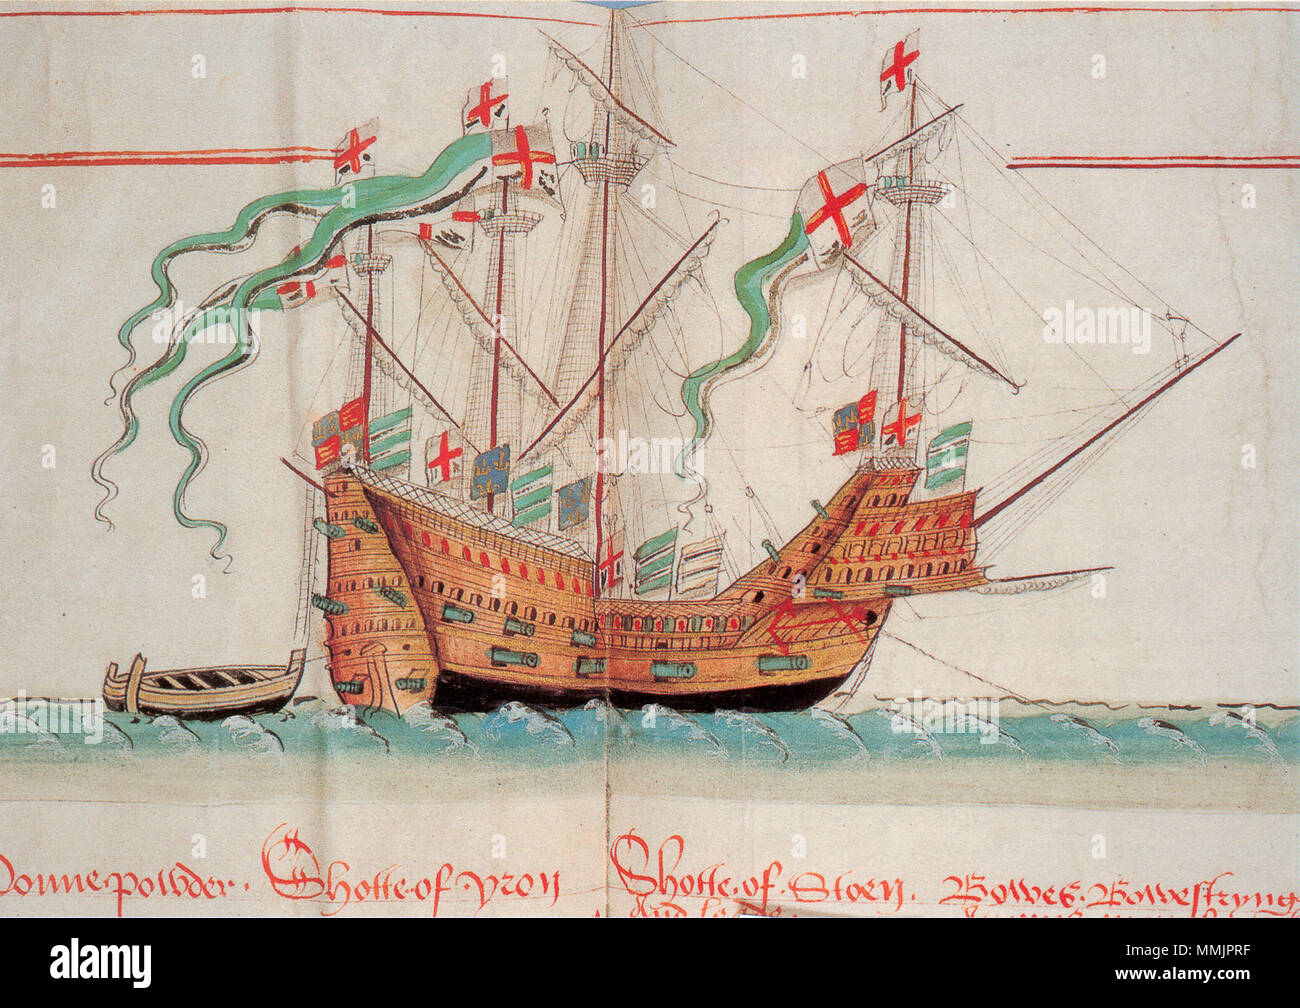 Gonne powder. Shotte of yron Shotte of Stoen. Bowes Bowestryng
And leade
alamy
Image ID: MMJPRF
www.alamy.com